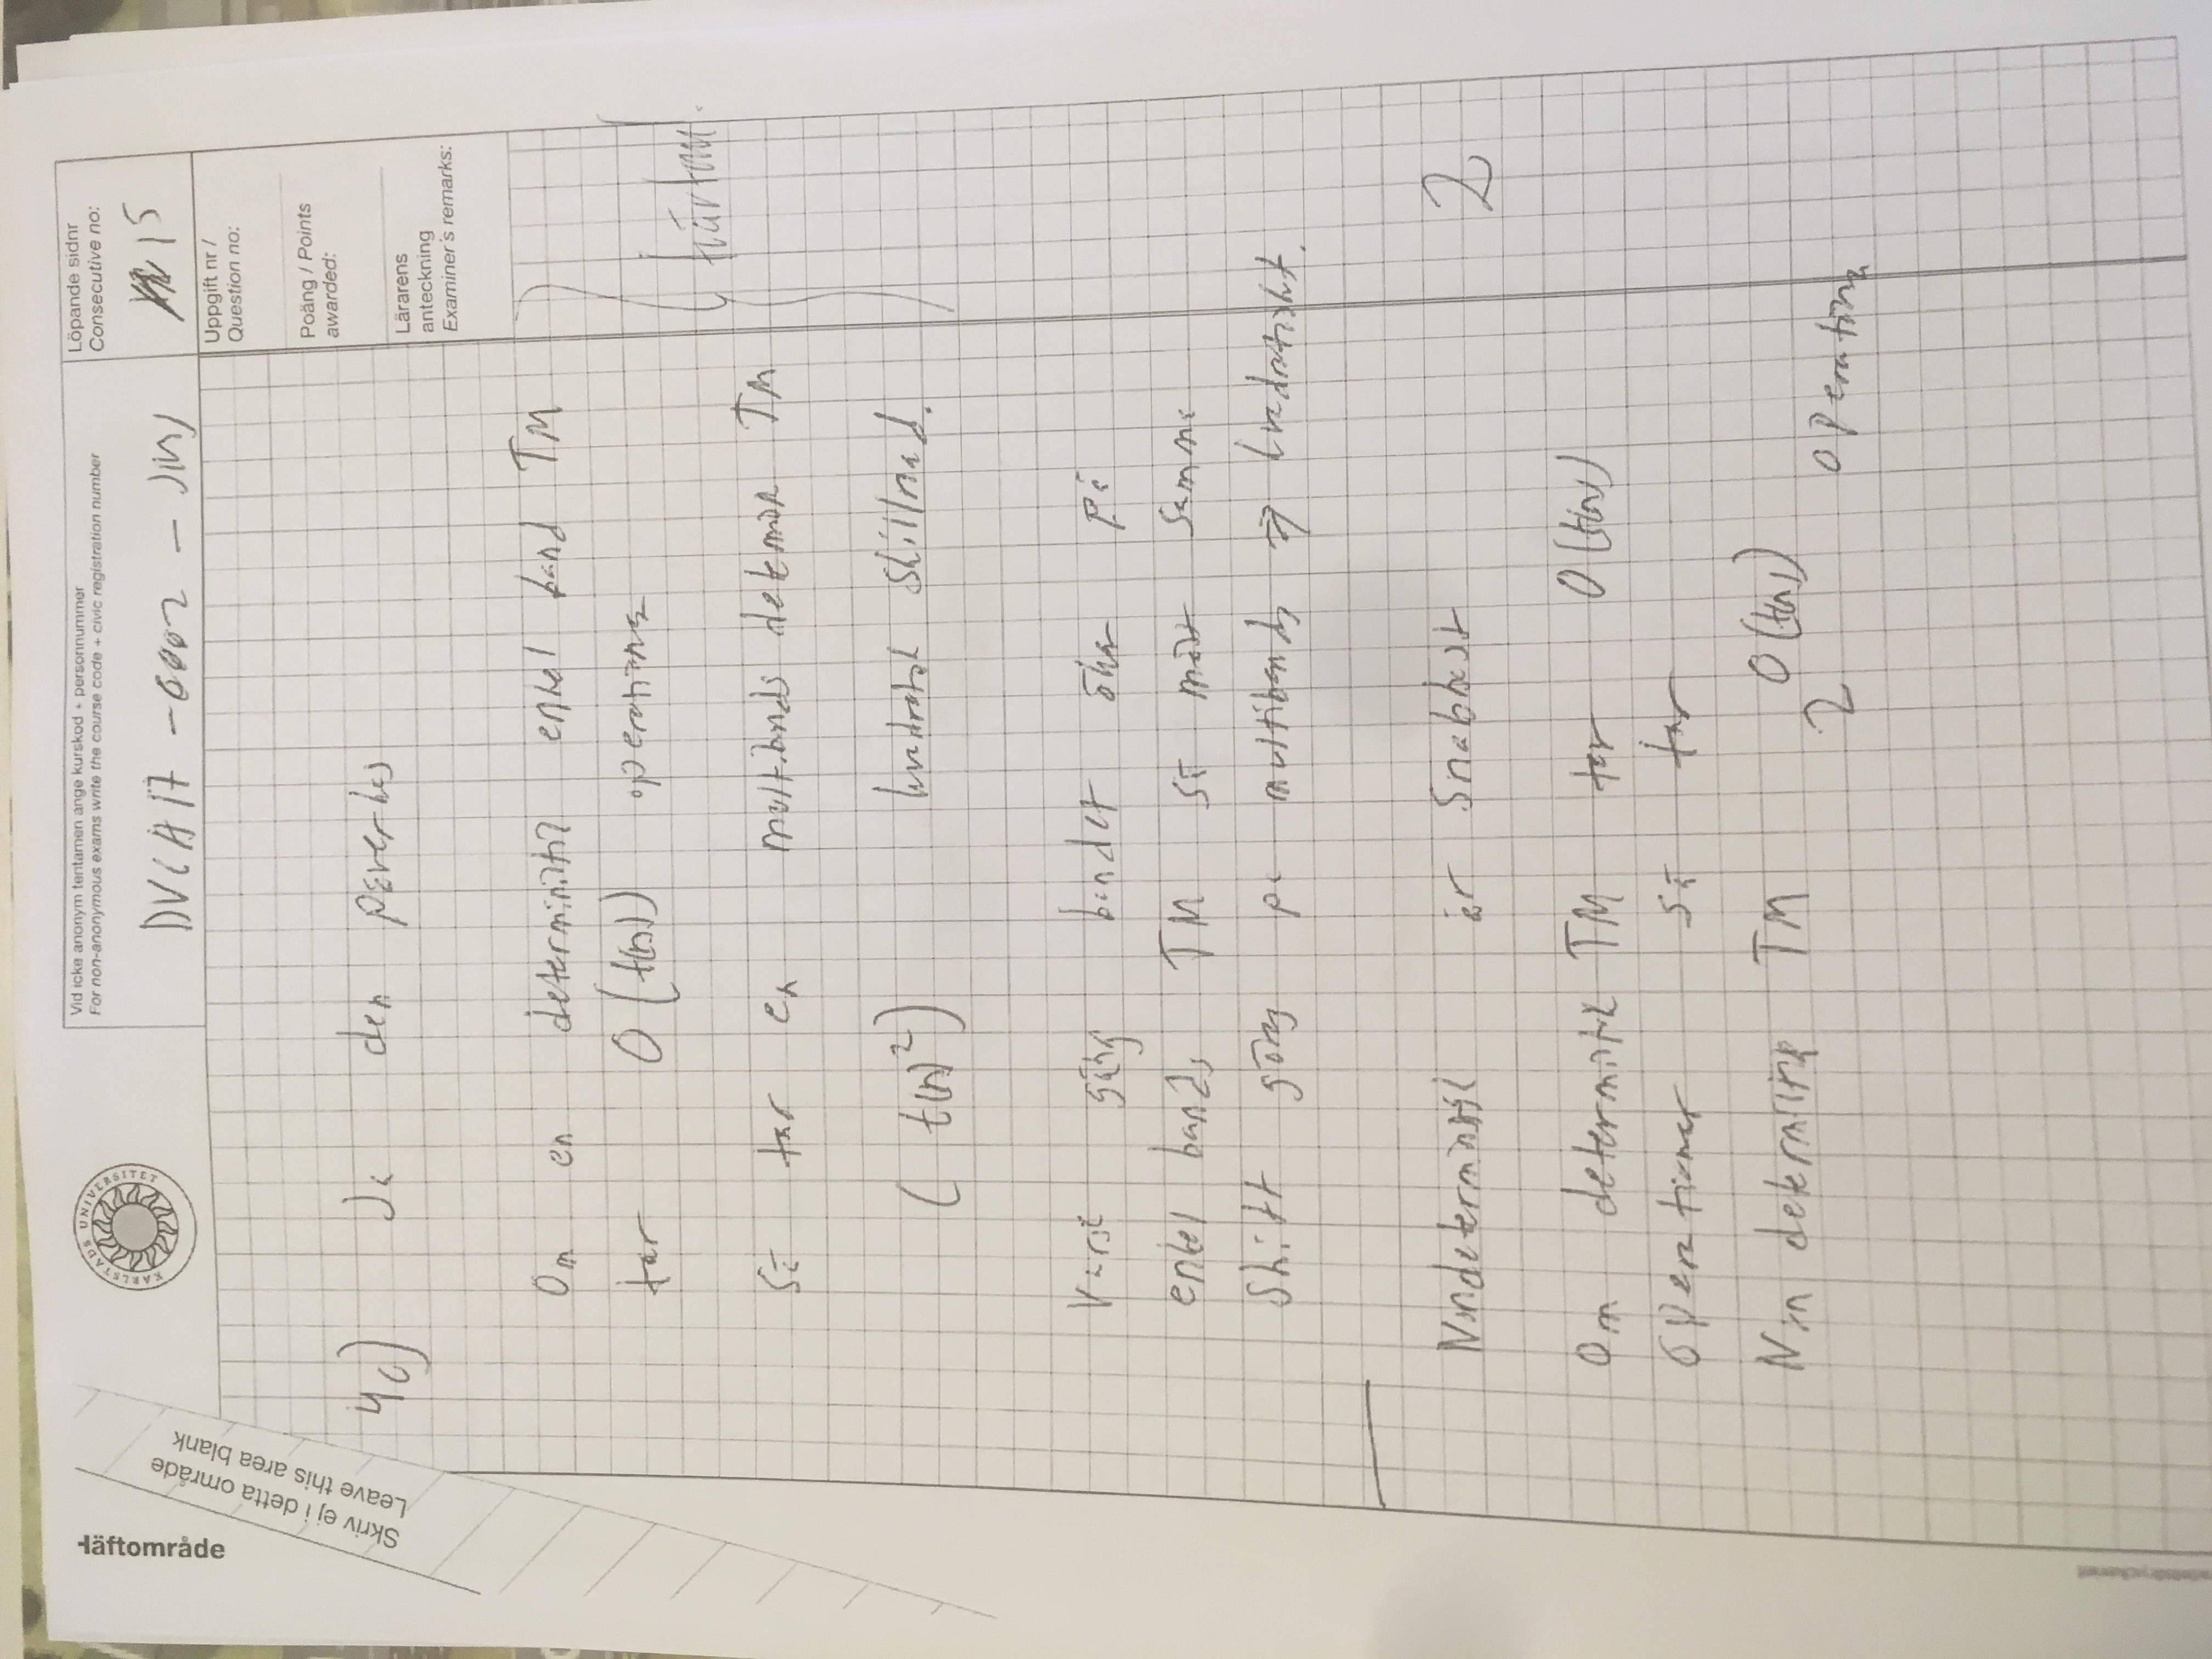 Häftområde
Skriv ej i detta område
Leave this area blank
KARLSTADS UNIVERSITET
Vid icke anonym tentamen ange kurskod + personnummer
For non-anonymous exams write the course code + civic registration number
DVGA17 -0002 -
Löpande sidnr
Consecutive no:
15
Uppgift nr /
Question no:
Poäng / Points
awarded:
Lärarens
anteckning
Examiner's remarks:
4c) Ja den påverkas
Om en deterministik enkel band TM
tar O(t(n)) operationer
tvärtom!
så tar en multibands determin TM
(t(n)²) kvadratisk skillnad.
Varje gång bandet ökar på
enkel bands TM så måst samma
Skift görs på multibands ⇒ kvadratiskt.
Nondeterministik är snabbast
2
Om deterministik TM tar O(t(n))
operationer så tar
Non determinstik TM 2^O(t(n)) operationer